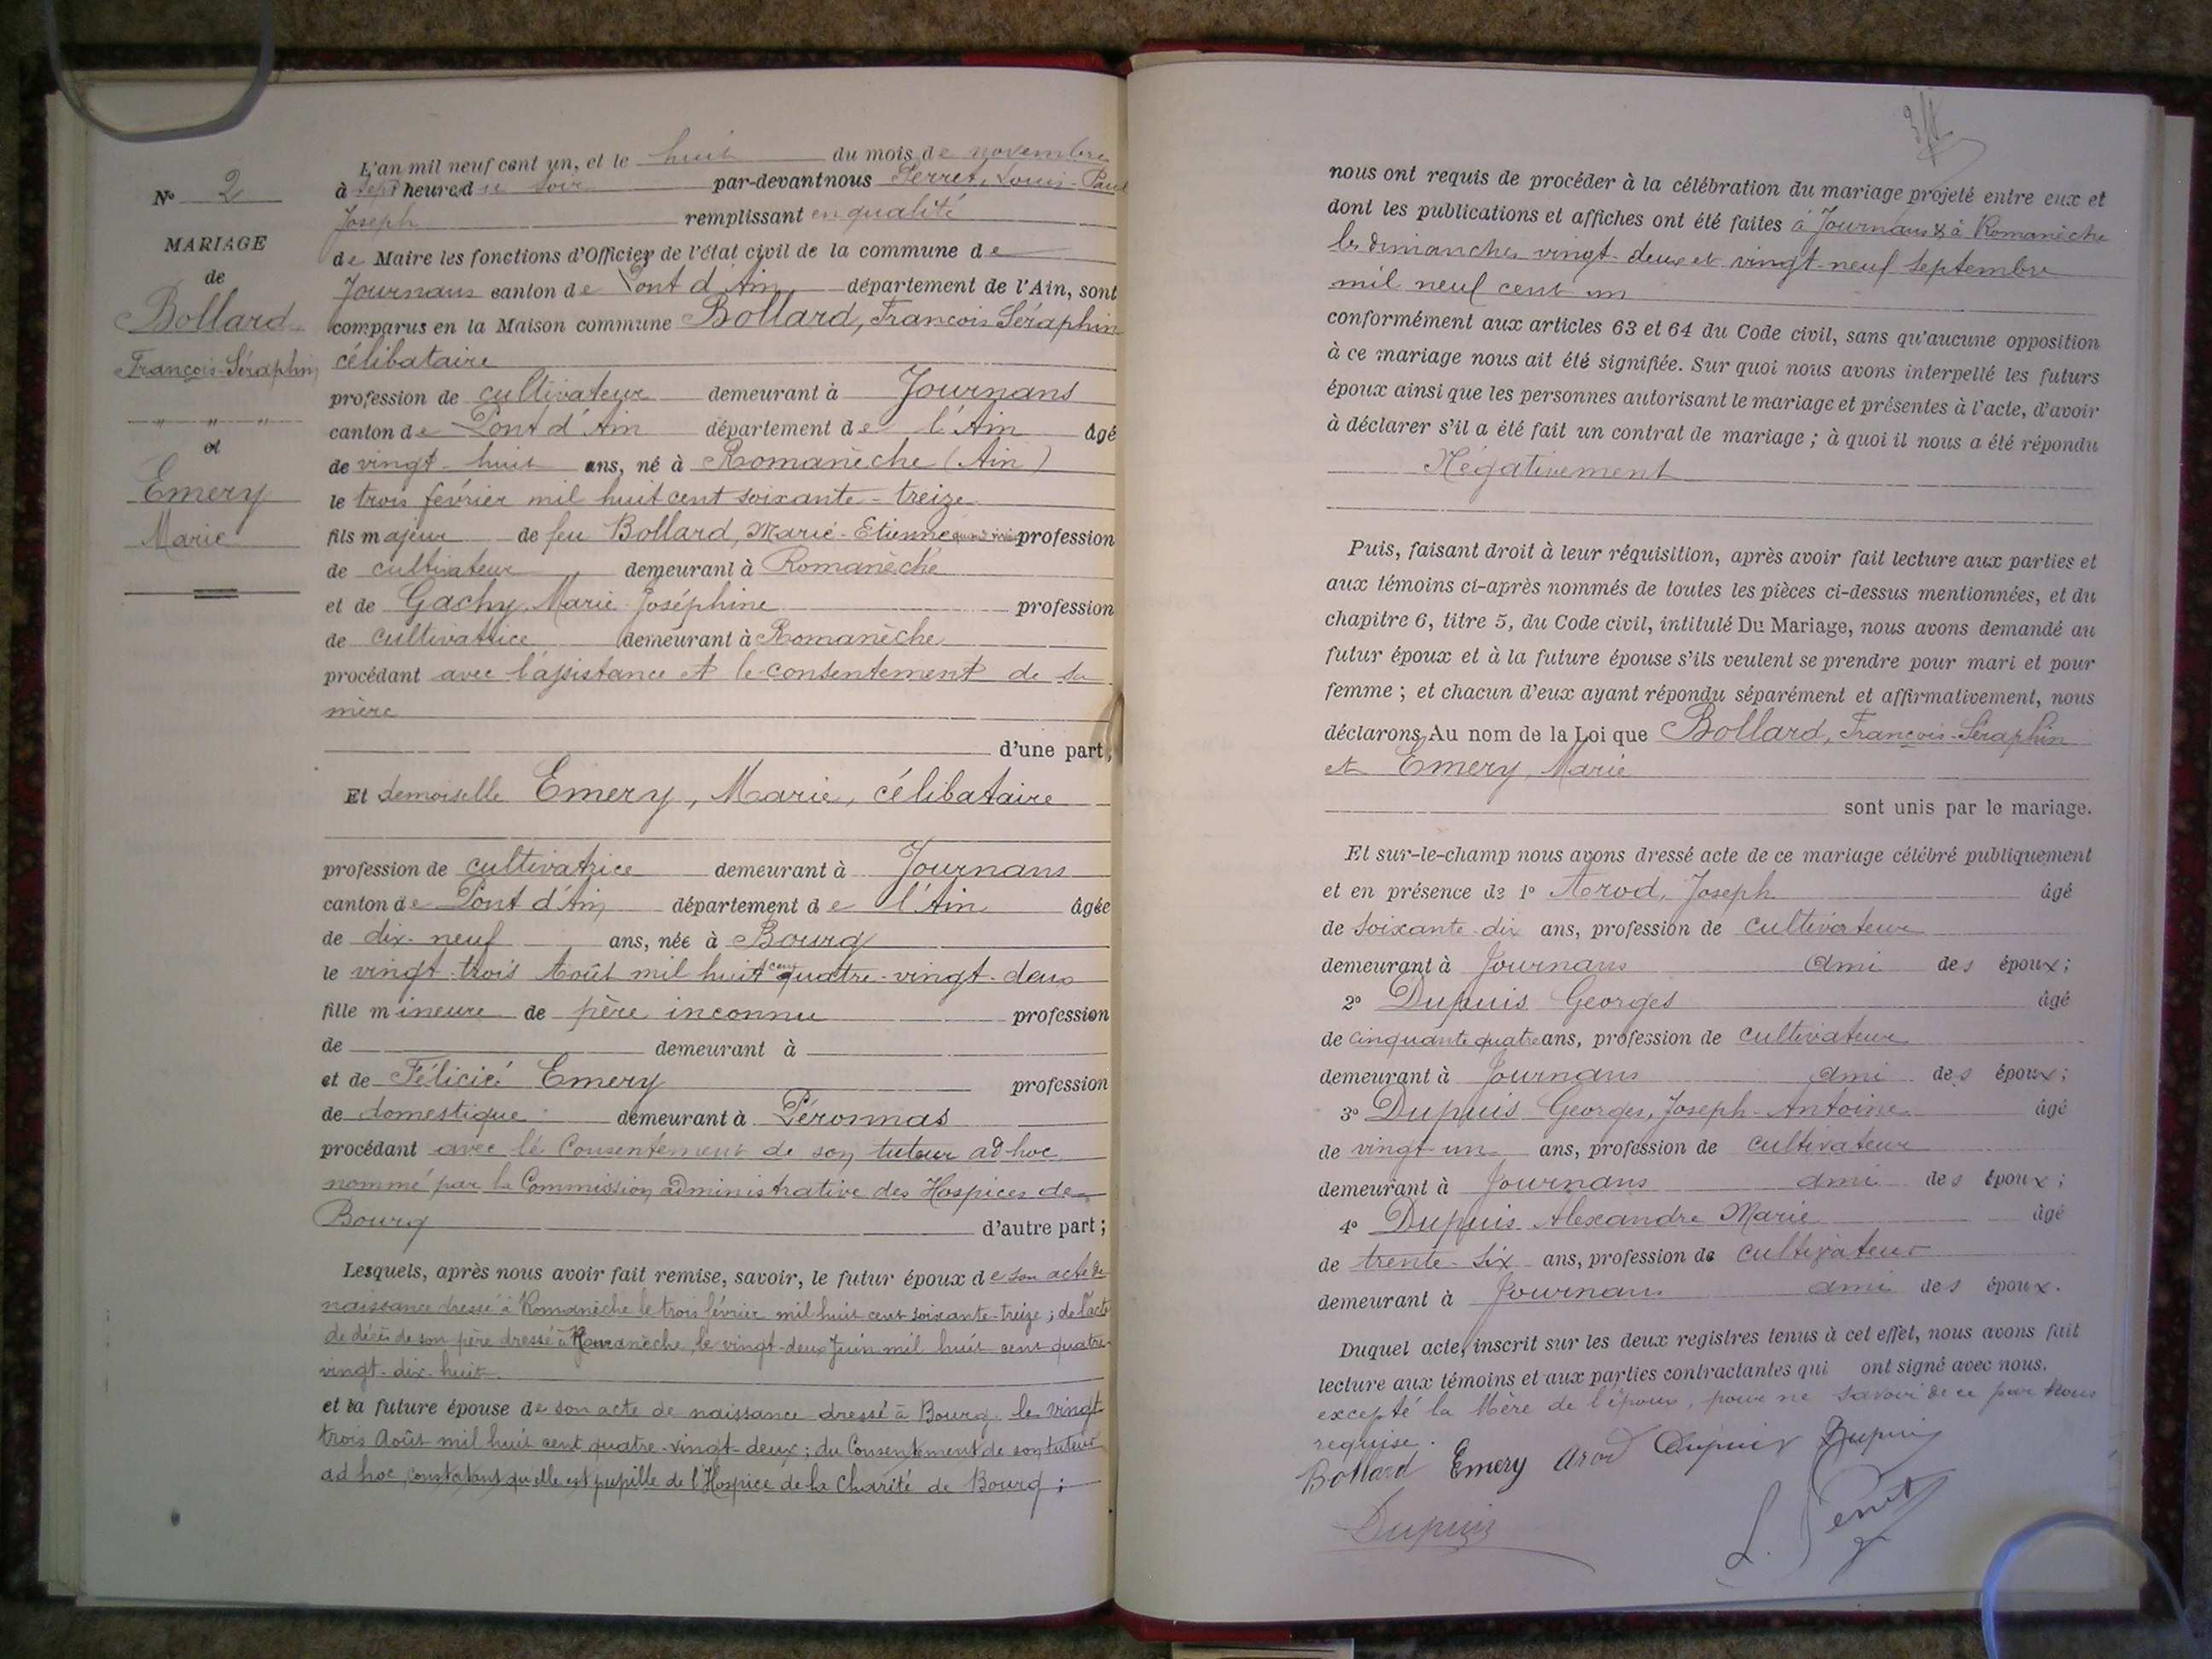 N° 2
MARIAGE
de
Bollard
François-Séraphin
" " "
et
Emery
Marie
L'an mil neuf cent un, et le huit du mois de novembre
à sept heures du soir par-devant nous Perret, Louis-Paul
Joseph remplissant en qualité
de Maire les fonctions d'Officier de l'état civil de la commune de
Journans canton de Pont d'Ain, département de l'Ain, sont
comparus en la Maison commune Bollard, François Séraphin
célibataire
profession de cultivateur demeurant à Journans
canton de Pont d'Ain département de l'Ain âgé
de vingt-huit ans, né à Romanèche (Ain)
le trois février mil huit cent soixante-treize
fils majeur de feu Bollard, Marie-Etienne quand vivait profession
de cultivateur demeurant à Romanèche
et de Gachy, Marie Joséphine profession
de cultivatrice demeurant à Romanèche
procédant avec l'assistance et le consentement de sa
mère
d'une part;
Et demoiselle Emery, Marie, célibataire
profession de cultivatrice demeurant à Journans
canton de Pont d'Ain département de l'Ain âgée
de dix-neuf ans, née à Bourg
le vingt-trois Août mil huit cent quatre-vingt-deux
fille mineure de père inconnu profession
de demeurant à
et de Félicie Emery profession
de domestique demeurant à Péronnas
procédant avec le Consentement de son tuteur ad hoc
nommé par la Commission administrative des Hospices de
Bourg d'autre part;
Lesquels, après nous avoir fait remise, savoir, le futur époux de son acte de
naissance dressé à Romanèche le trois février mil huit cent soixante-treize; de l'acte
de décès de son père dressé à Romanèche, le vingt-deux Juin mil huit cent quatre-
vingt-dix-huit
et la future épouse de son acte de naissance dressé à Bourg le vingt
trois Août mil huit cent quatre-vingt-deux; du Consentement de son tuteur
ad hoc, constatant qu'elle est pupille de l'Hospice de la Charité de Bourg;
nous ont requis de procéder à la célébration du mariage projeté entre eux et
dont les publications et affiches ont été faites à Journans & à Romanèche
les dimanches vingt-deux et vingt-neuf Septembre
mil neuf cent un
conformément aux articles 63 et 64 du Code civil, sans qu'aucune opposition
à ce mariage nous ait été signifiée. Sur quoi nous avons interpellé les futurs
époux ainsi que les personnes autorisant le mariage et présentes à l'acte, d'avoir
à déclarer s'il a été fait un contrat de mariage; à quoi il nous a été répondu
Négativement
Puis, faisant droit à leur réquisition, après avoir fait lecture aux parties et
aux témoins ci-après nommés de toutes les pièces ci-dessus mentionnées, et du
chapitre 6, titre 5, du Code civil, intitulé Du Mariage, nous avons demandé au
futur époux et à la future épouse s'ils veulent se prendre pour mari et pour
femme; et chacun d'eux ayant répondu séparément et affirmativement, nous
déclarons, Au nom de la Loi que Bollard, François-Séraphin
et Emery, Marie
sont unis par le mariage.
Et sur-le-champ nous avons dressé acte de ce mariage célébré publiquement
et en présence de 1° Arod, Joseph âgé
de soixante-dix ans, profession de cultivateur
demeurant à Journans ami des époux;
2° Dupuis Georges âgé
de cinquante quatre ans, profession de cultivateur
demeurant à Journans ami des époux;
3° Dupuis Georges, Joseph-Antoine âgé
de vingt-un ans, profession de cultivateur
demeurant à Journans ami des époux;
4° Dupuis Alexandre Marie âgé
de trente-six ans, profession de cultivateur
demeurant à Journans ami des époux.
Duquel acte, inscrit sur les deux registres tenus à cet effet, nous avons fait
lecture aux témoins et aux parties contractantes qui ont signé avec nous.
excepté la Mère de l'époux, pour ne savoir de ce par nous
requise.
Bollard Emery Arod Dupuis Dupuis
Dupuis
L. Perret